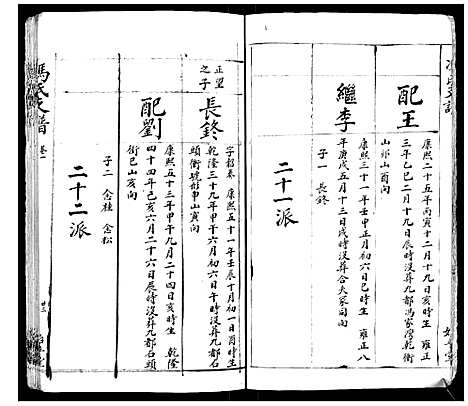 配王
康熙二十五年丙寅十二月十九日亥時生 雍正
三年乙巳二月十九日辰時沒葬九都馮家灣乾衝
山 山酉向
繼李
康熙三十一年壬申正月六日巳時生 雍正八
年庚戌五月十三日戌時沒葬合夫冢同向
子一 長終
二十一派
正望
之子
長終
字 康熙五十一年壬辰十月初一日酉時生
乾隆三十九年甲午六月初六日午時沒葬九都石
頭衝 形申山寅向
配劉
康熙五十三年甲午九月二十四日亥時生 乾隆
四十四年己亥六月二十六日辰時沒葬九都石頭
衝巳山亥向
子二 念桂 念松
二十二派
馮氏支譜
卷一